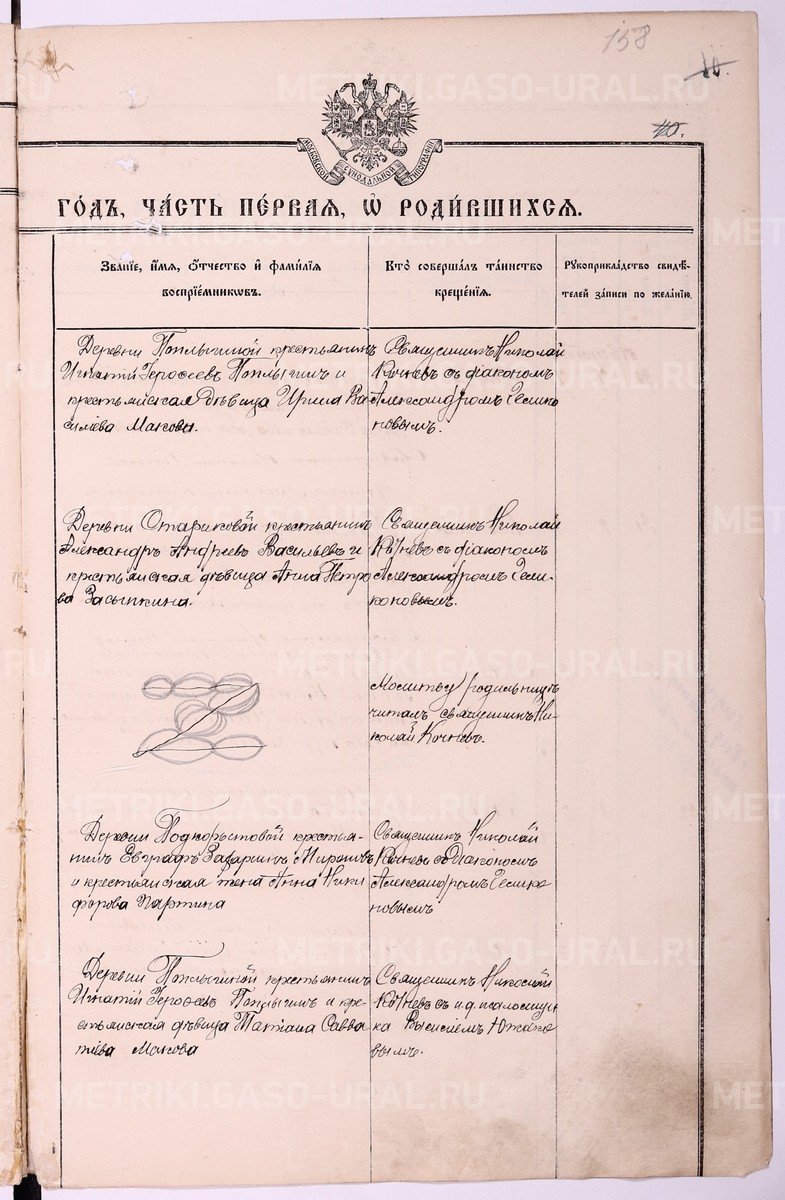 158
10.
40.
МОСКОВСКОЙ СѴНОДАЛЬНОЙ ТИПОГРАФІИ
ГО́ДЪ, ЧА́СТЬ ПЕ́РВАЯ, Ѡ҆ РОДИ́ВШИХСЯ.
Зва́ніе, и҆́мя, ѻ҆́тчество и҆ фами́лія
воспріе́мниковъ.
Кто̀ соверша́лъ та́инство
креще́нія.
Рꙋкоприкла́дство свидѣ́-
телей за́писи по жела́нію.
Деревни Поплыгиной крестьянинъ
Игнатій Героѳеевъ Поплыгинъ и
крестьянская дѣвица Ирина Ва
сильева Макова.
Священникъ Николай
Кочневъ съ діакономъ
Александромъ
новымъ.
Деревни Стариковой крестьянинъ
Александръ Андреевъ Васильевъ и
крестьянская дѣвица Анна Петро
ва Засыпкина.
Священникъ Николай
Кочневъ съ діакономъ
Александромъ
Молитву родильницѣ
читалъ священникъ Ни-
колай Кочневъ.
Деревни Подкорытовой крестья-
нинъ Евграфъ Мироновъ
и крестьянская жена Анна Ники
форова
Священникъ Николай
Кочневъ съ діакономъ
Александромъ
новымъ
Деревни Поплыгиной крестьянинъ
Игнатій Героѳеевъ Поплыгинъ и кре-
стьянская дѣвица Татіана Савва
тіева Макова
Священникъ Николай
Кочневъ съ и.д. псаломщи
ка Василіемъ Южако
вымъ.
METRIKI.GASO-URAL.RU